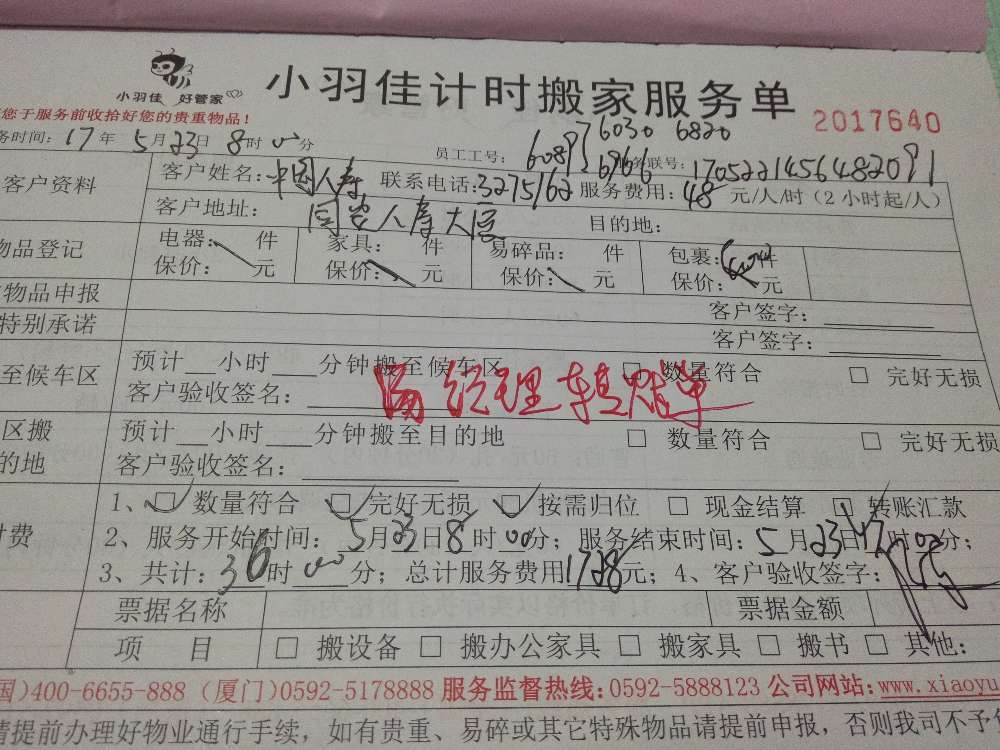 小羽佳 好管家
小羽佳计时搬家服务单
2017640
您于服务前收拾好您的贵重物品!
务时间: 17 年 5 月 23 日 8 时 00 分
员工工号: 6030 6820
服务联号: 17052214564482091
客户资料 客户姓名: 中国人寿 联系电话: 3275162 服务费用: 48 元/人/时(2小时起/人)
客户地址: 国贸人寿大厦 目的地:
物品登记 电器: 件 家具: 件 易碎品: 件 包裹: 件
保价: 元 保价: 元 保价: 元 保价: 元
物品申报 客户签字:
特别承诺 客户签字:
至候车区 预计 小时 分钟搬至候车区 □ 数量符合 □ 完好无损
客户验收签名: 经理 转账单
区搬 预计 小时 分钟搬至目的地 □ 数量符合 □ 完好无损
的地 客户验收签名:
1、☑ 数量符合 ☑ 完好无损 ☑ 按需归位 □ 现金结算 ☑ 转账汇款
付费 2、服务开始时间: 5 月 23 日 8 时 00 分; 服务结束时间: 5 月 23 日 17 时 00 分;
3、共计: 36 时 00 分; 总计服务费用 1728 元; 4、客户验收签字:
票据名称 票据金额
项 目 □ 搬设备 □ 搬办公家具 □ 搬家具 □ 搬书 □ 其他:
国)400-6655-888 (厦门)0592-5178888 服务监督热线:0592-5888123 公司网站:www.xiaoyu
请提前办理好物业通行手续,如有贵重、易碎或其它特殊物品请提前申报,否则我司不予